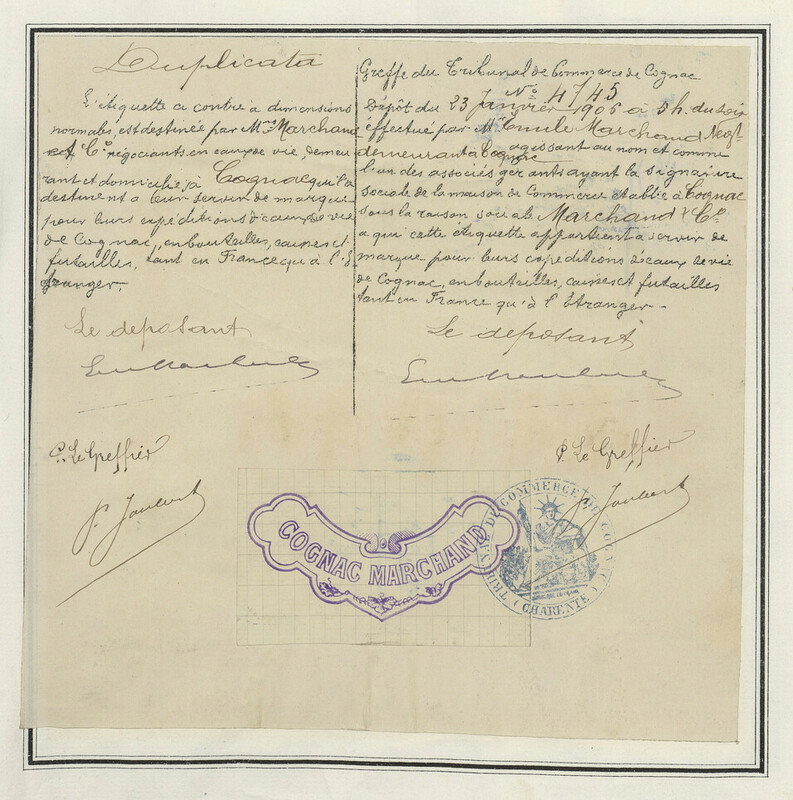 Duplicata
L'étiquette ci contre à dimensions
normales, est destinée par Mrs Marchand
et Cie négociants en eaux de vie, demeu
rant et domiciliés à Cognac qu'ils
destinent à leur servir de marque
pour leurs expéditions d'eaux de vie
de Cognac, en bouteilles, caisses et
futailles, tant en France qu'à l'É
tranger.
Le deposant
P. Le Greffier
P. Joubert
Greffe du Tribunal de Commerce de Cognac
No 4745
Dépôt du 23 Janvier 1906 à 5 h. du soir
effectué par Mr Emile Marchand Negt
demeurant à Cognac agissant au nom et comme
l'un des associés gérants ayant la signature
sociale de la maison de Commerce etablie à Cognac
sous la raison sociale Marchand & Cie
a qui cette étiquette appartient à servir de
marque pour leurs expeditions d'eaux de vie
de Cognac, en bouteilles, caisses et futailles
tant en France qu'à l'Étranger
Le deposant
P. Le Greffier
P. Joubert
COGNAC MARCHAND
TRIBUNAL DE COMMERCE DE COGNAC
(CHARENTE)